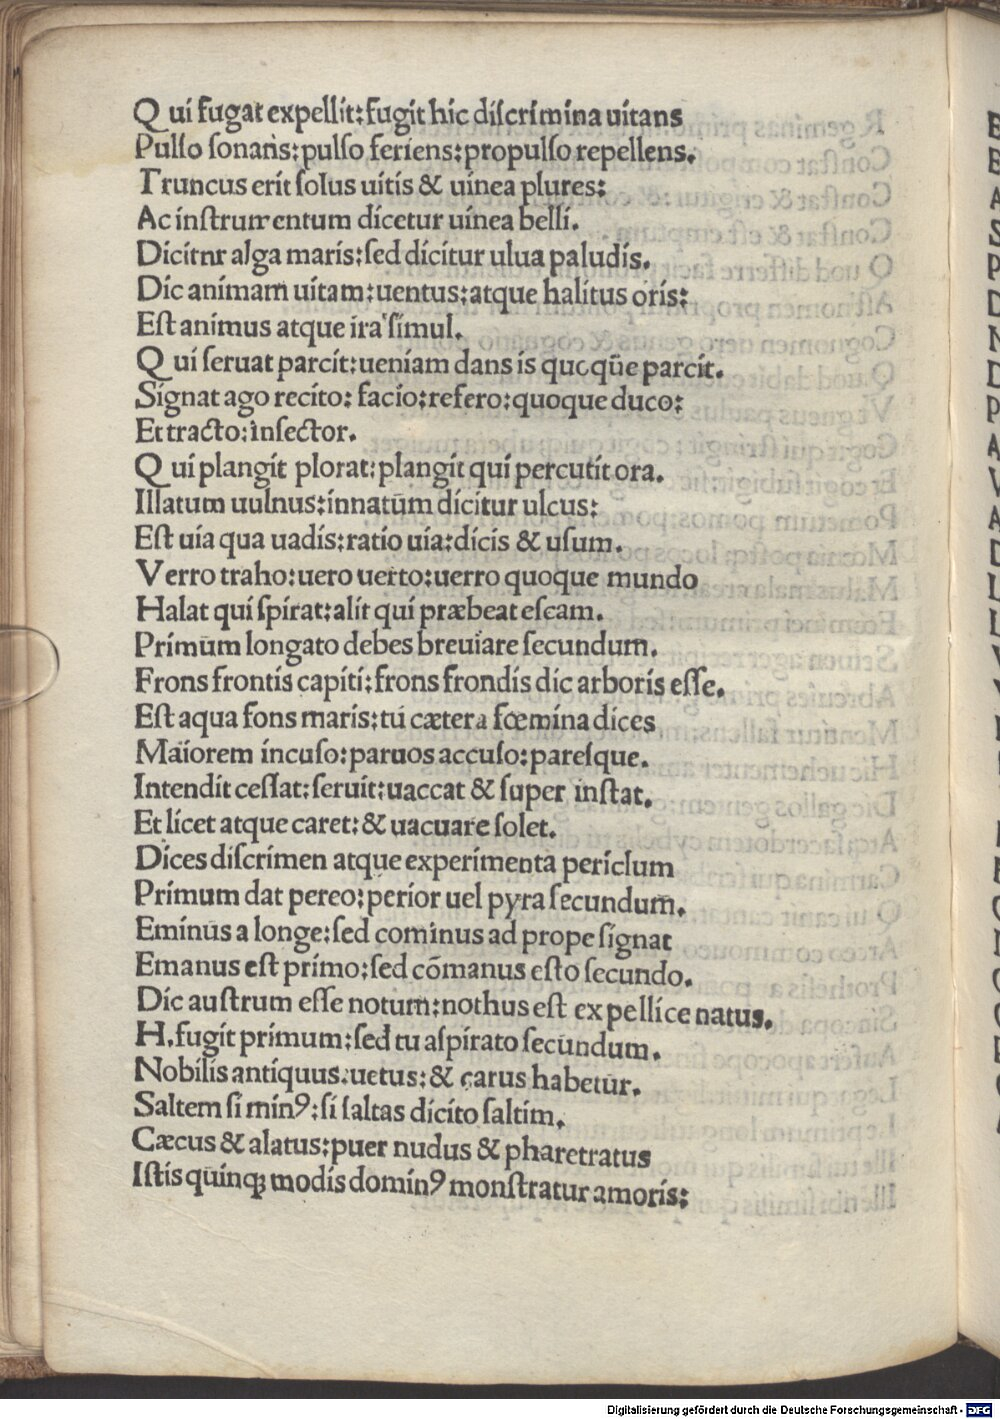 Q ui fugat expellit:fugit hic diſcrimina uitans
Pulſo ſonans:pulſo feriens:propulſo repellens.
Truncus erit ſolus uitis & uinea plures:
Ac inſtrumentum dicetur uinea belli.
Dicitnr alga maris:ſed dicitur ulua paludis.
Dic animam uitam:uentus:atque halitus oris:
Eſt animus atque ira ſimul.
Q ui ſeruat parcit:ueniam dans is quoq̃ue parcit.
Signat ago recito: facio:refero:quoque duco:
Et tracto:inſector.
Q ui plangit plorat:plangit qui percutit ora.
Illatum uulnus:innatum dicitur ulcus:
Eſt uia qua uadis:ratio uia:dicis & uſum.
Verro traho:uero uerto:uerro quoque mundo
Halat qui ſpirat:alit qui præbeat eſcam.
Primum longato debes breuiare ſecundum.
Frons frontis capiti:frons frondis dic arboris eſſe.
Eſt aqua fons maris:tu cætera fœmina dices
Maiorem incuſo:paruos accuſo:pareſque.
Intendit ceſſat:ſeruit:uaccat & ſuper inſtat.
Et licet atque caret:& uacuare ſolet.
Dices diſcrimen atque experimenta periclum
Primum dat pereo:perior uel pyra ſecundum.
Eminus a longe:ſed cominus ad prope ſignat
Emanus eſt primo:ſed cōmanus eſto ſecundo.
Dic auſtrum eſſe notum:nothus eſt ex pellice natus.
H.fugit primum:ſed tu aſpirato ſecundum.
Nobilis antiquus:uetus:& carus habetur.
Saltem ſi minꝰ:ſi ſaltas dicito ſaltim.
Cæcus & alatus:puer nudus & pharetratus
Iſtis quinqꝫ modis dominꝰ monſtratur amoris:
Digitalisierung gefördert durch die Deutsche Forschungsgemeinschaft - DFG